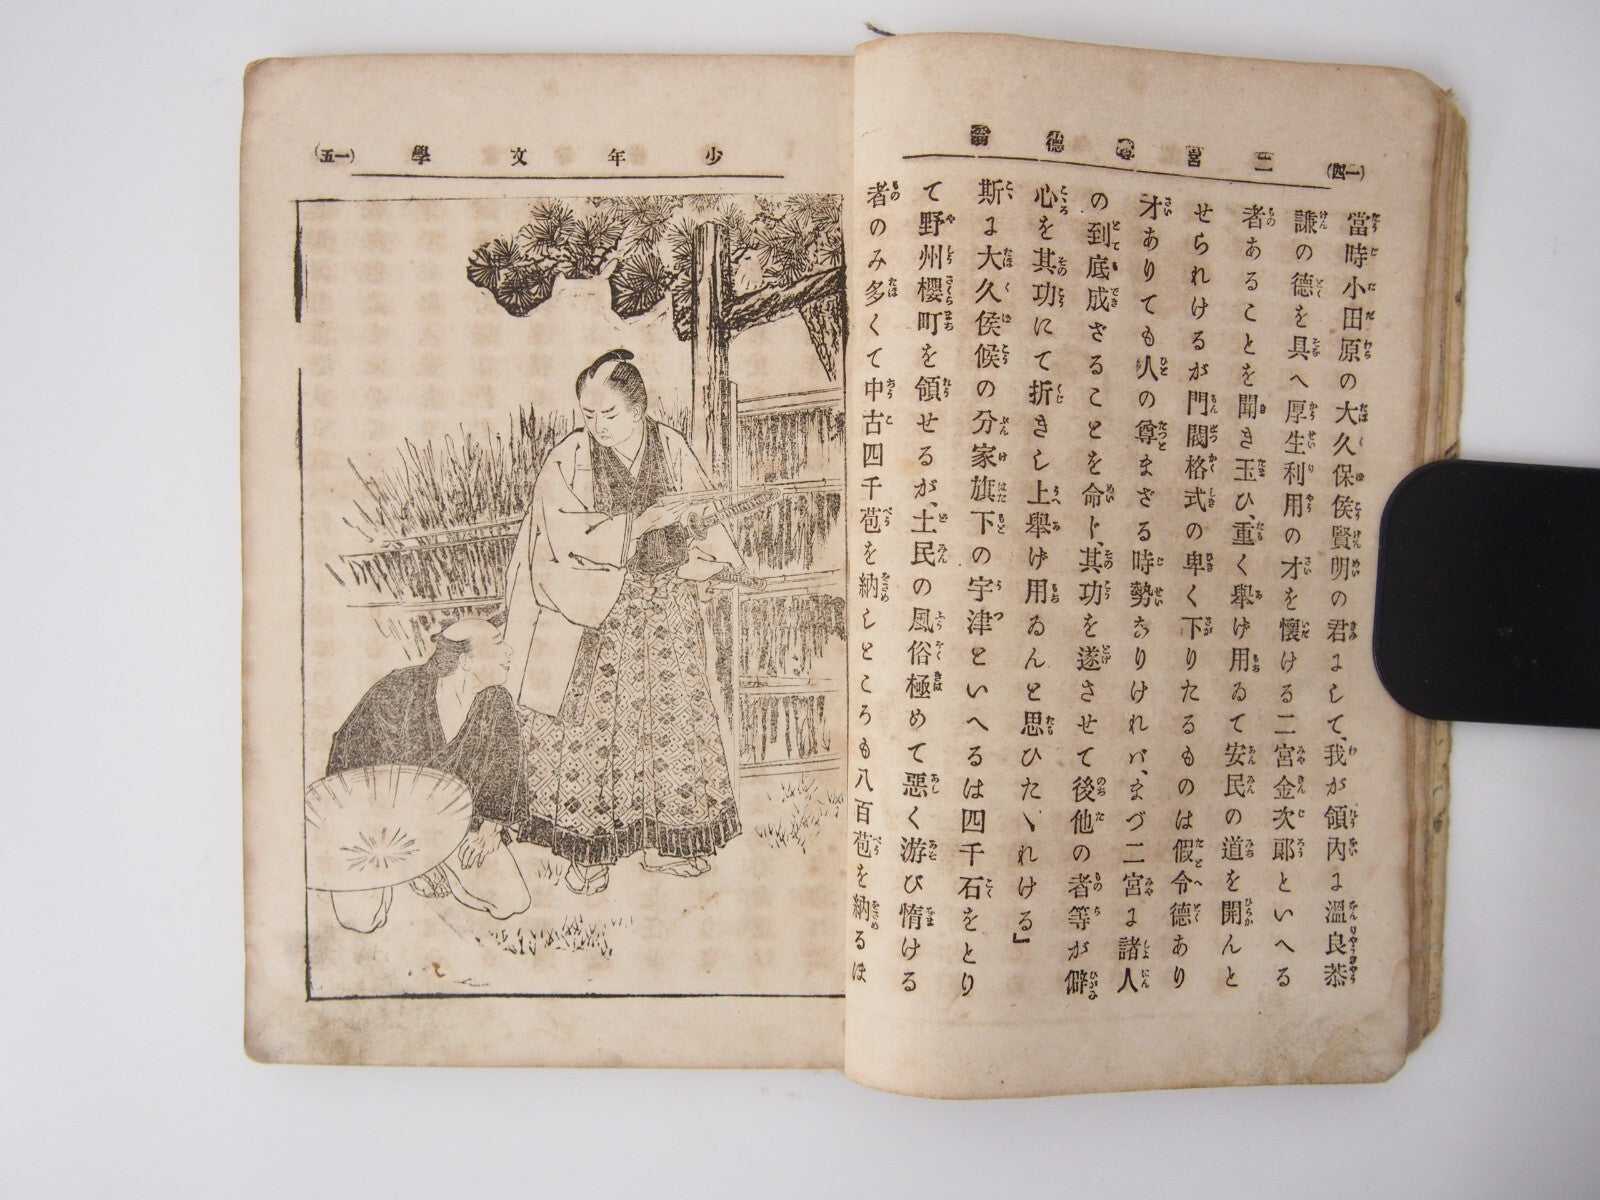 (一四)
二宮尊德翁
當時小田原の大久保侯賢明の君ょして、我が領內ょ溫良恭
謙の德を具へ厚生利用の才を懷ける二宮金次郞といへる
者あることを聞き玉ひ、重く擧げ用ゐて安民の道を開んと
せられけるが門閥格式の卑く下りたるものは假令へ德あり
才ありても人の尊まざる時勢なりけれバ、まづ二宮ょ諸人
の到底成ざることを命じ、其功を遂させて後他の者等が僻
心を其功にて折きし上擧げ用ゐんと思ひたヽれける」
斯ょ大久侯候の分家旗下の宇津といへるは四千石をとり
て野州櫻町を領せるが、土民の風俗極めて惡く游び惰ける
者のみ多くて中古四千苞を納しところも八百苞を納るは
少年文學
(一五)